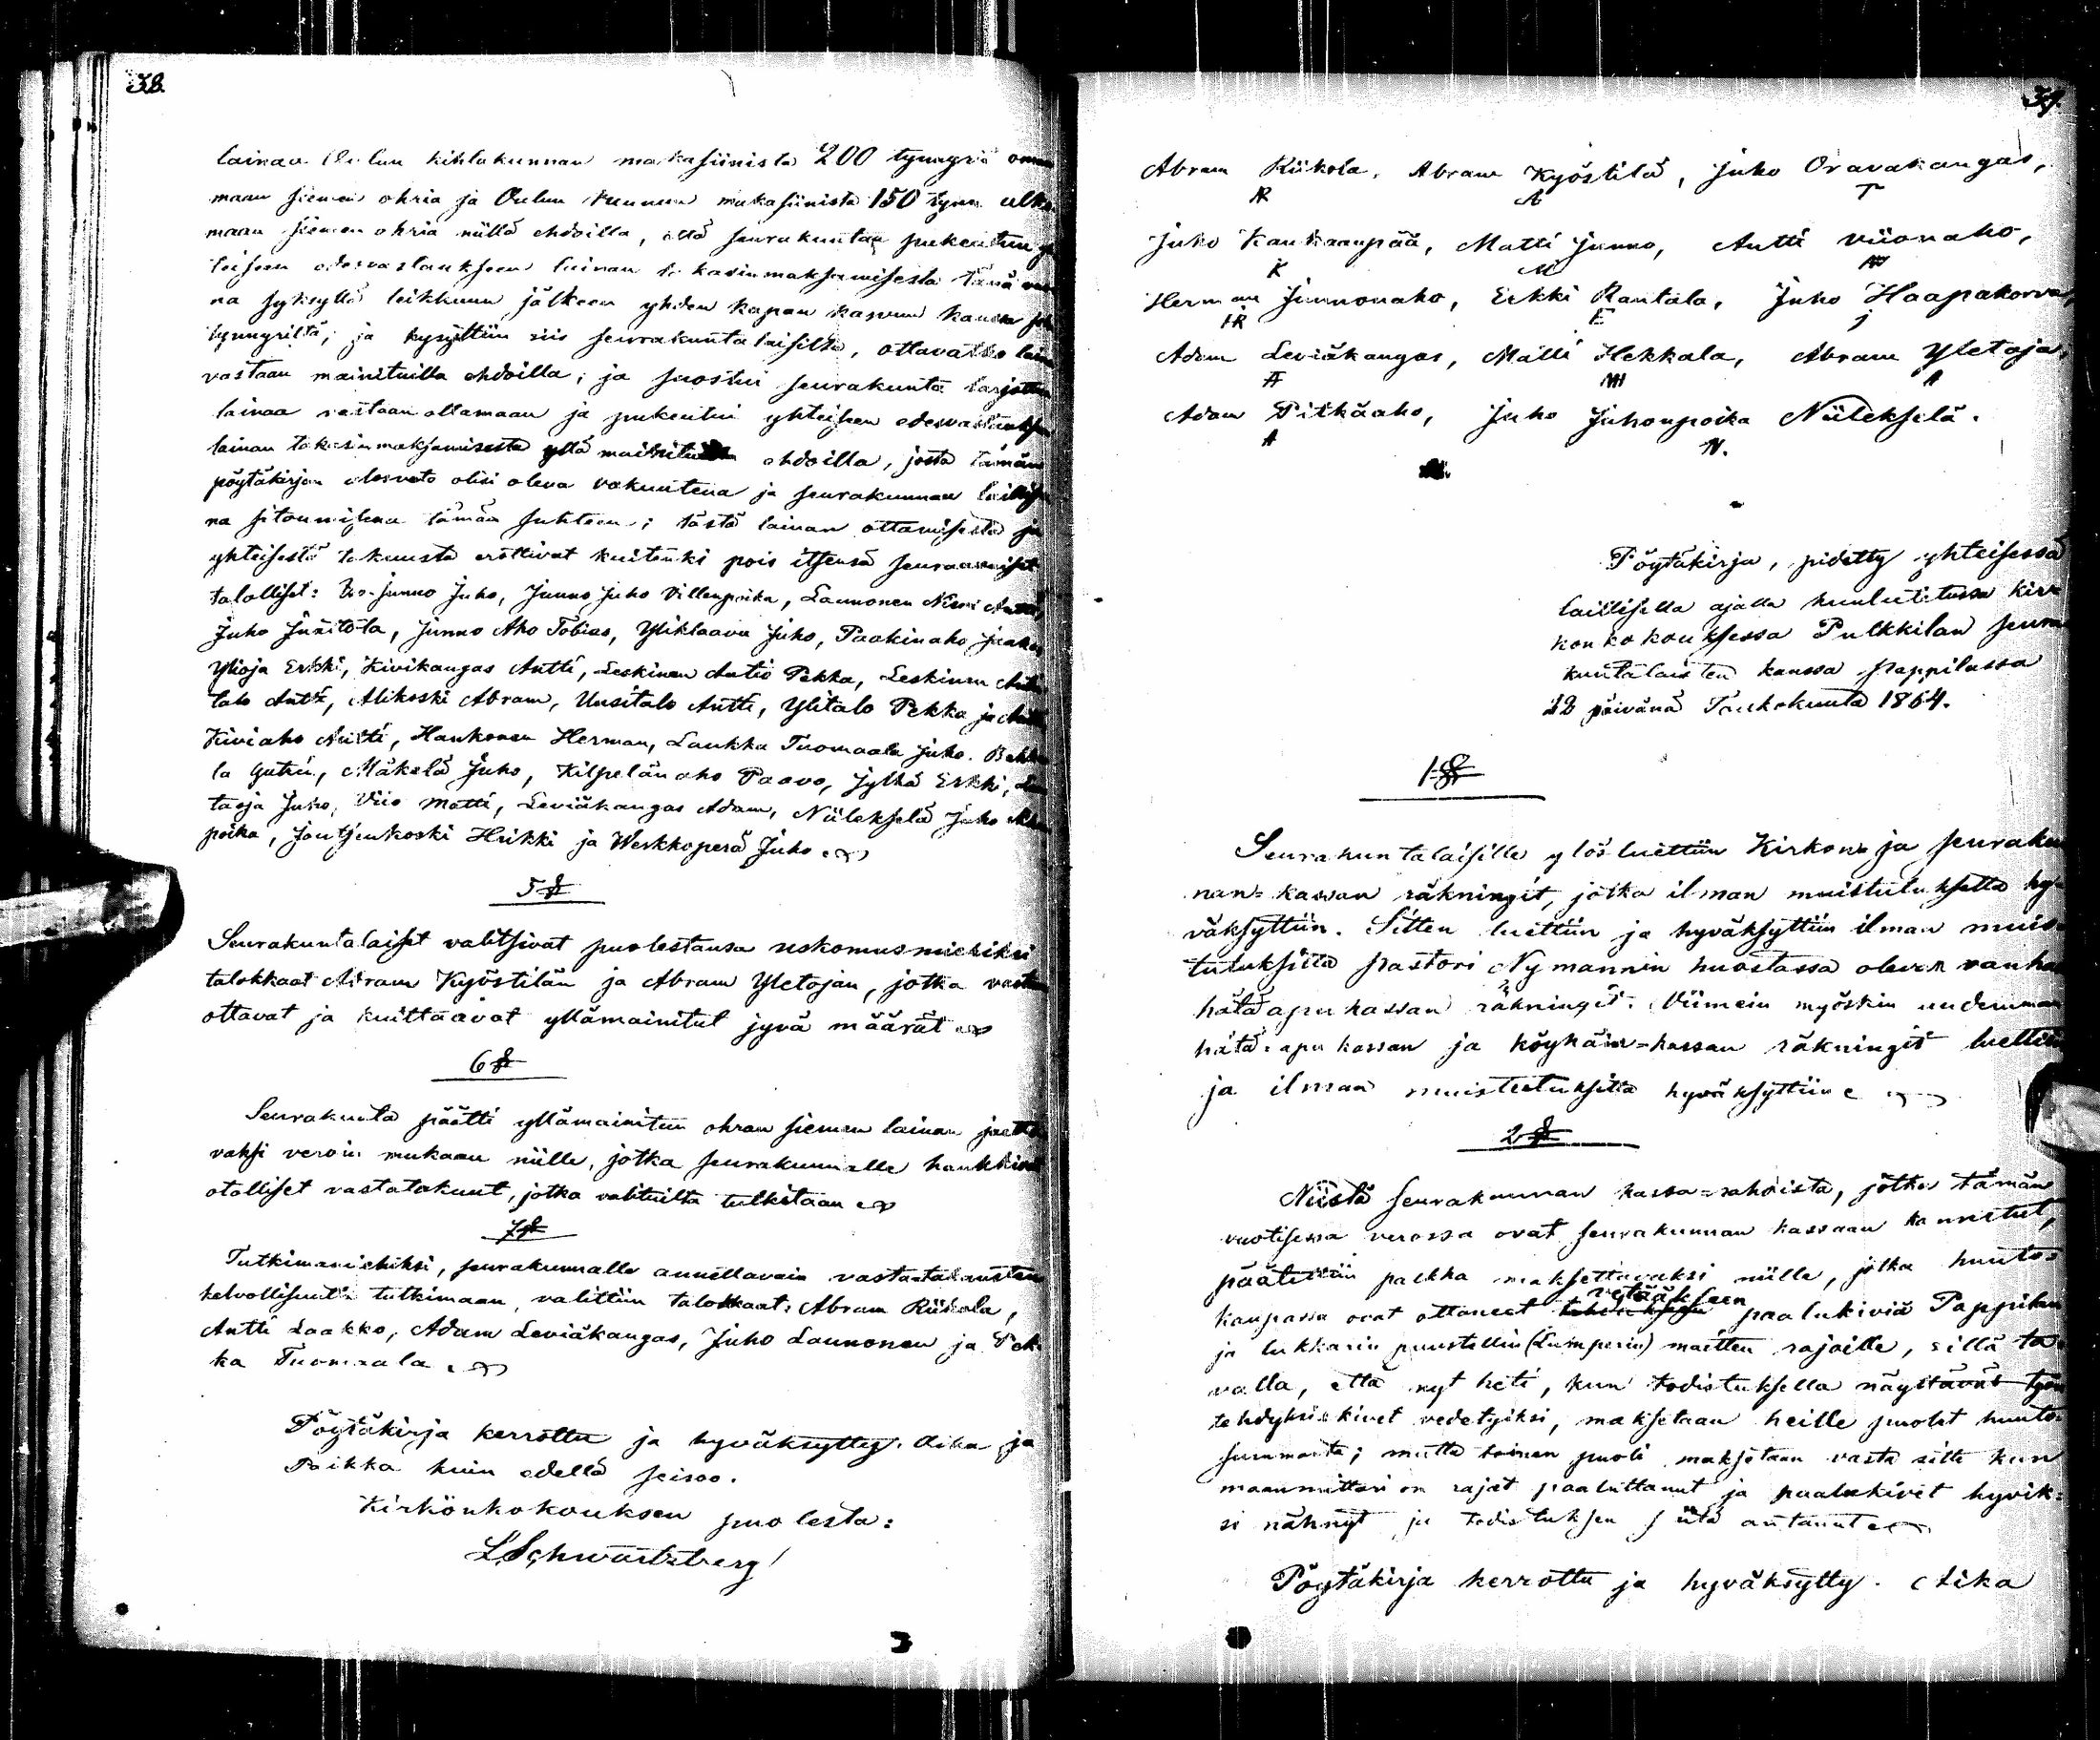 38.
lainaa Oulun kihlakunnan makasiinista 200 tynnyriä oman
maan siemen ohria ja Oulun kunnan makasiinista 150 tynn. ulko
maan siemen ohria niillä ehdoilla, että seurakuntan pukeutuu y
teiseen edesvastaukseen lainan takasin maksamisesta tänä vuon
na syksyllä leikkuun jälkeen yhden kapan kasvun kanssa joka
tynnyriltä; ja kysyttiin siis seurakuntalaisilta, ottavatko lainan
vastaan mainituilla ehdoilla; ja suostui seurakunta tarjottua
lainaa vastaan ottamaan ja pukeutui yhteiseen edesvastaukseen
lainan takasin maksamisesta yllä mainituilla ehdoilla, josta tämän
pöytäkirjan olesvato olisi oleva vakuutena ja seurakunnan laillise
na sitoumisena tämän suhteen; tästä lainan ottamisesta ja
yhteisestä takuusta erottivat kuitenki pois itsensä seuraavaiset
talolliset: Iso-Junno Juho, Junno Juho Villenpoika, Launonen Niini Antti,
Juho Junttola, Junno Aho Tobias, Yliklaavu Juho, Paakinaho Jaako
Ylioja Erkki, Kivikangas Antti, Leskinen Antio Pekka, Leskinen Antti
talo Antti, Alikoski Abram, Uusitalo Antti, Ylitalo Pekka ja Antti
Kiviaho Antti, Hankonen Herman, Laukka Tuomaala Juho. Bakka
la Gutrii, Mäkelä Juho, Kilpelänaho Paavo, Jylhä Erkki, Lau
taoja Juho, Viio Matti, Leviäkangas Adam, Niilekselä Juho Abram
poika, Joutsenkoski Heikki ja Werkkoperä Juho.
5 §
Seurakuntalaiset valitsivat puolestansa uskomusmiehiksi
talokkaat Abram Kyöstilän ja Abram Yletojan, jotka vastaan
ottavat ja kuittaavat yllämainitut jyvä määrät
6 §
Seurakunta päätti yllämainitun ohran siemen lainan jaetta
vaksi veroin mukaan niille, jotka seurakunnalle hankkivat
otolliset vastatakuut, jotka valituilta tutkitaan
7 §
Tutkimamiehiksi, seurakunnalle annettavain vastatakausten
kelvollisuutta tutkimaan, valittiin talokkaat: Abram Riikola,
Antti Laakko, Adam Leviäkangas, Juho Launonen ja Pek-
ka Tuomaala.
Pöytäkirja kerrottu ja hyväksytty. Aika ja
Paikka kuin edellä seisoo.
Kirkönkokouksen puolesta:
L. Schwartzberg
39.
Abram Riikola, Abram Kyöstilä, Juho Oravakangas,
R A T
Juho Kaukaanpää, Matti Junno, Antti Viionaho,
K M AV
Herman Junnonaho, Erkki Rantala, Juho Haapakorva,
HR E J
Adam Leviäkangas, Matti Hekkala, Abram Yletoja,
A MH A
Adam Pitkäaho, Juho Juhonpoika Niilekselä.
A N.
Pöytäkirja, pidetty yhteisessä
laillisella ajalla kuulutetussa kir-
konkokouksessa Pulkkilan seura-
kuntalaisten kanssa pappilassa
22 päivänä Toukokuuta 1864.
1 §
Seurakuntalaisille ylösluettiin Kirkon ja seurakun
nan-kassan räkningit, jotka ilman muistutuksetta hy-
väksyttiin. Sitten luettiin ja hyväksyttiin ilman muis-
tutuksitta pastori Nymannin huostassa olevan vanhan
hätäapukassan räkningit. Viimein myöskin uudemman
hätä-apu kassan ja köyhäin-kassan räkningit luettiin
ja ilman muistutuksitta hyväksyttiin
2 §
Niistä seurakunnan kassa-rahoista, jotka tämän
vuotisessa verossa ovat seurakunnan kassaan kannetut,
päätettiin palkka maksettavaksi niille, jotka huuto-
kaupassa ovat ottaneet vetääkseen paalukiviä Pappilan
ja lukkarin puustellin (Lumperin) maitten rajoille, sillä ta-
valla, että nyt heti, kun todistuksella näyttävät työn
tehdyksi kivet vedetyiksi, maksetaan heille puolet huuto-
summasta; mutta toinen puoli maksetaan vasta sitte kun
maanmittari on rajat paaluttanut ja paalukivet hyvik-
si nähnyt ja todistuksen siitä antanut
Pöytäkirja kerrottu ja hyväksytty. Aika